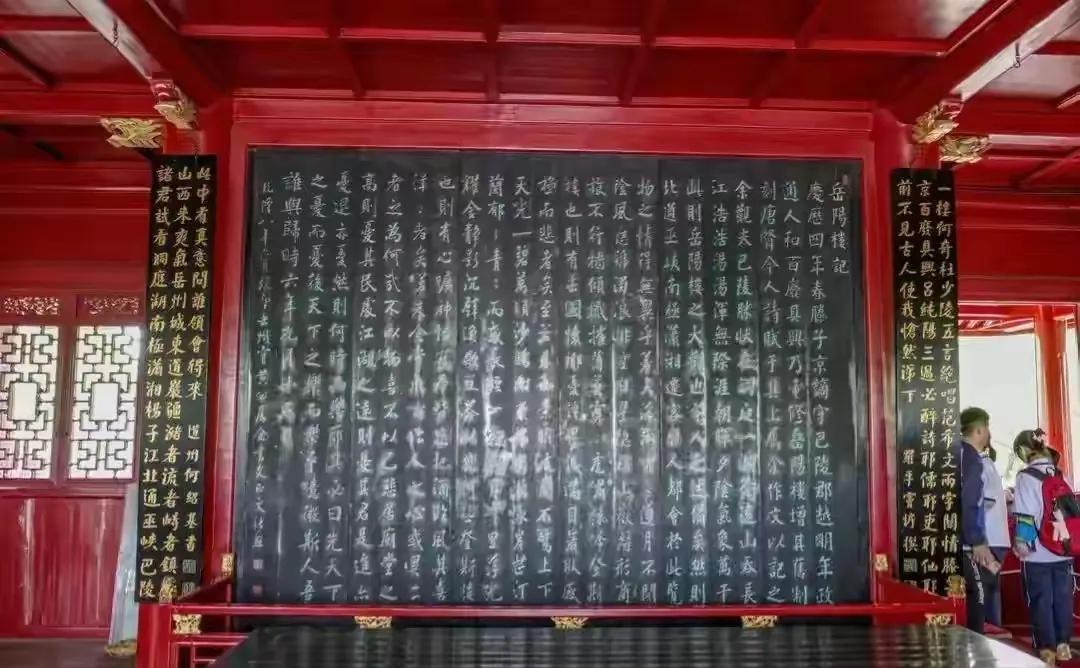 一樓何奇杜少陵五言絕唱范希文兩字關情滕子
京百廢具興呂純陽三過必醉詩耶儒耶吏耶仙耶
前不見古人使我愴然涕下
岳陽樓記
慶歷四年春滕子京謫守巴陵郡越明年政
通人和百廢具興乃重脩岳陽樓增其舊制
刻唐賢今人詩賦于其上屬余作文以記之
余觀夫巴陵勝狀在洞庭一湖銜遠山吞長
江浩浩湯湯渾無際涯朝暉夕陰氣象萬千
此則岳陽樓之大觀也前人之述備矣然則
北通巫峽南極瀟湘遷客騷人多會於此覽
物之情得無異乎若夫霪雨霏霏連月不開
陰風怒號濁浪排空日星隱曜山岳潛形商
旅不行檣傾楫摧薄暮冥冥虎嘯猿啼登斯
樓也則有去國懷鄉憂讒畏譏滿目蕭然感
極而悲者矣至若春和景明波瀾不驚上下
天光一碧萬頃沙鷗翔集錦鱗游泳岸芷汀
蘭郁〻青〻而或長煙一空皓月千里浮光
耀金靜影沉璧漁歌互答此樂何極登斯樓
也則有心曠神怡寵辱皆忘把酒臨風其喜
洋〻者矣嗟夫予嘗求古仁人之心或異二
者之為何哉不以物喜不以己悲居廟堂之
高則憂其民處江湖之遠則憂其君是進亦
憂退亦憂然則何時而樂耶其必曰先天下
之憂而憂後天下之樂而樂乎噫微斯人吾
誰與歸時六年九月十五日
乾隆八年
諸君試看洞庭湖南極瀟湘楊子江北通巫峽巴陵
山西來爽氣岳州城東道巖疆瀦者流者峙者鎮者
此中有真意問誰領會得來 道州何紹基書